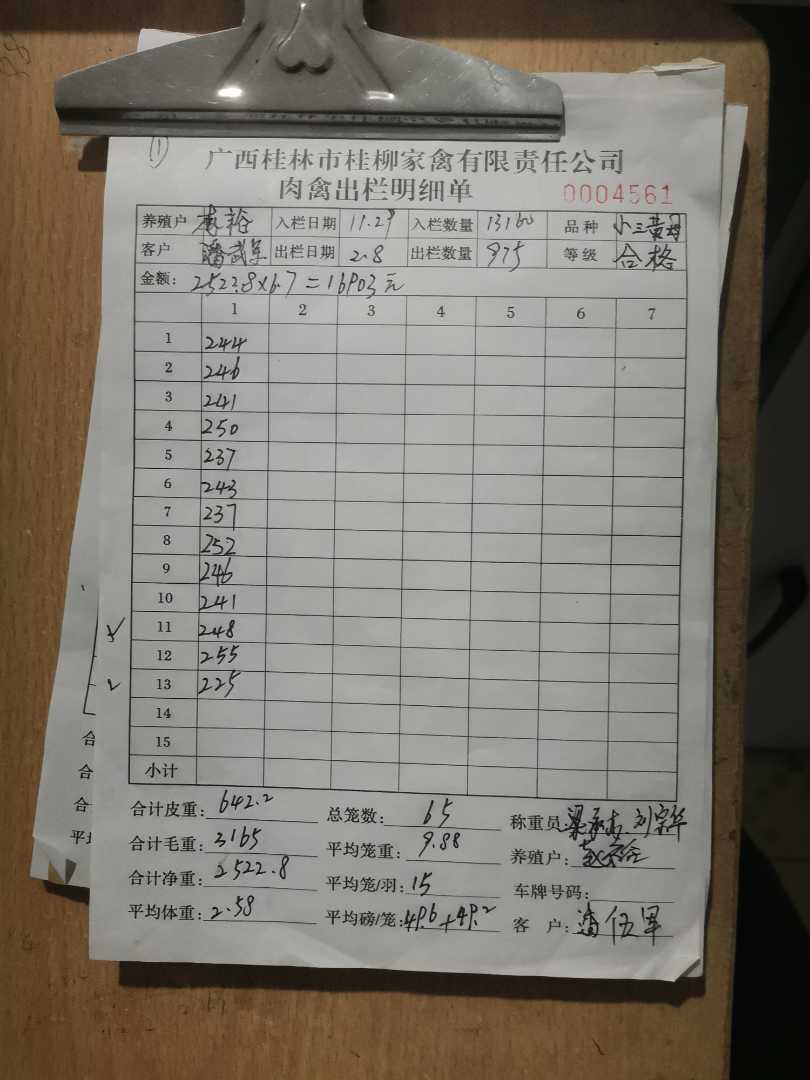 ①
广西桂林市桂柳家禽有限责任公司
肉禽出栏明细单 0004561
养殖户 李裕 入栏日期 11.29 入栏数量 13160 品种 小三黄母
客户 潘武军 出栏日期 2.8 出栏数量 975 等级 合格
金额: 2522.8×6.7=16903元
1 2 3 4 5 6 7
1 244
2 246
3 241
4 250
5 237
6 243
7 237
8 252
9 246
10 241
11 248
12 255
13 225
14
15
小计
合计皮重: 642.2 总笼数: 65 称重员:
合计毛重: 3165 平均笼重: 9.88 养殖户:
合计净重: 2522.8 平均笼/羽: 15 车牌号码:
平均体重: 2.58 平均磅/笼: 49.6+49.2 客户: 潘伍军
合
合
合
平均